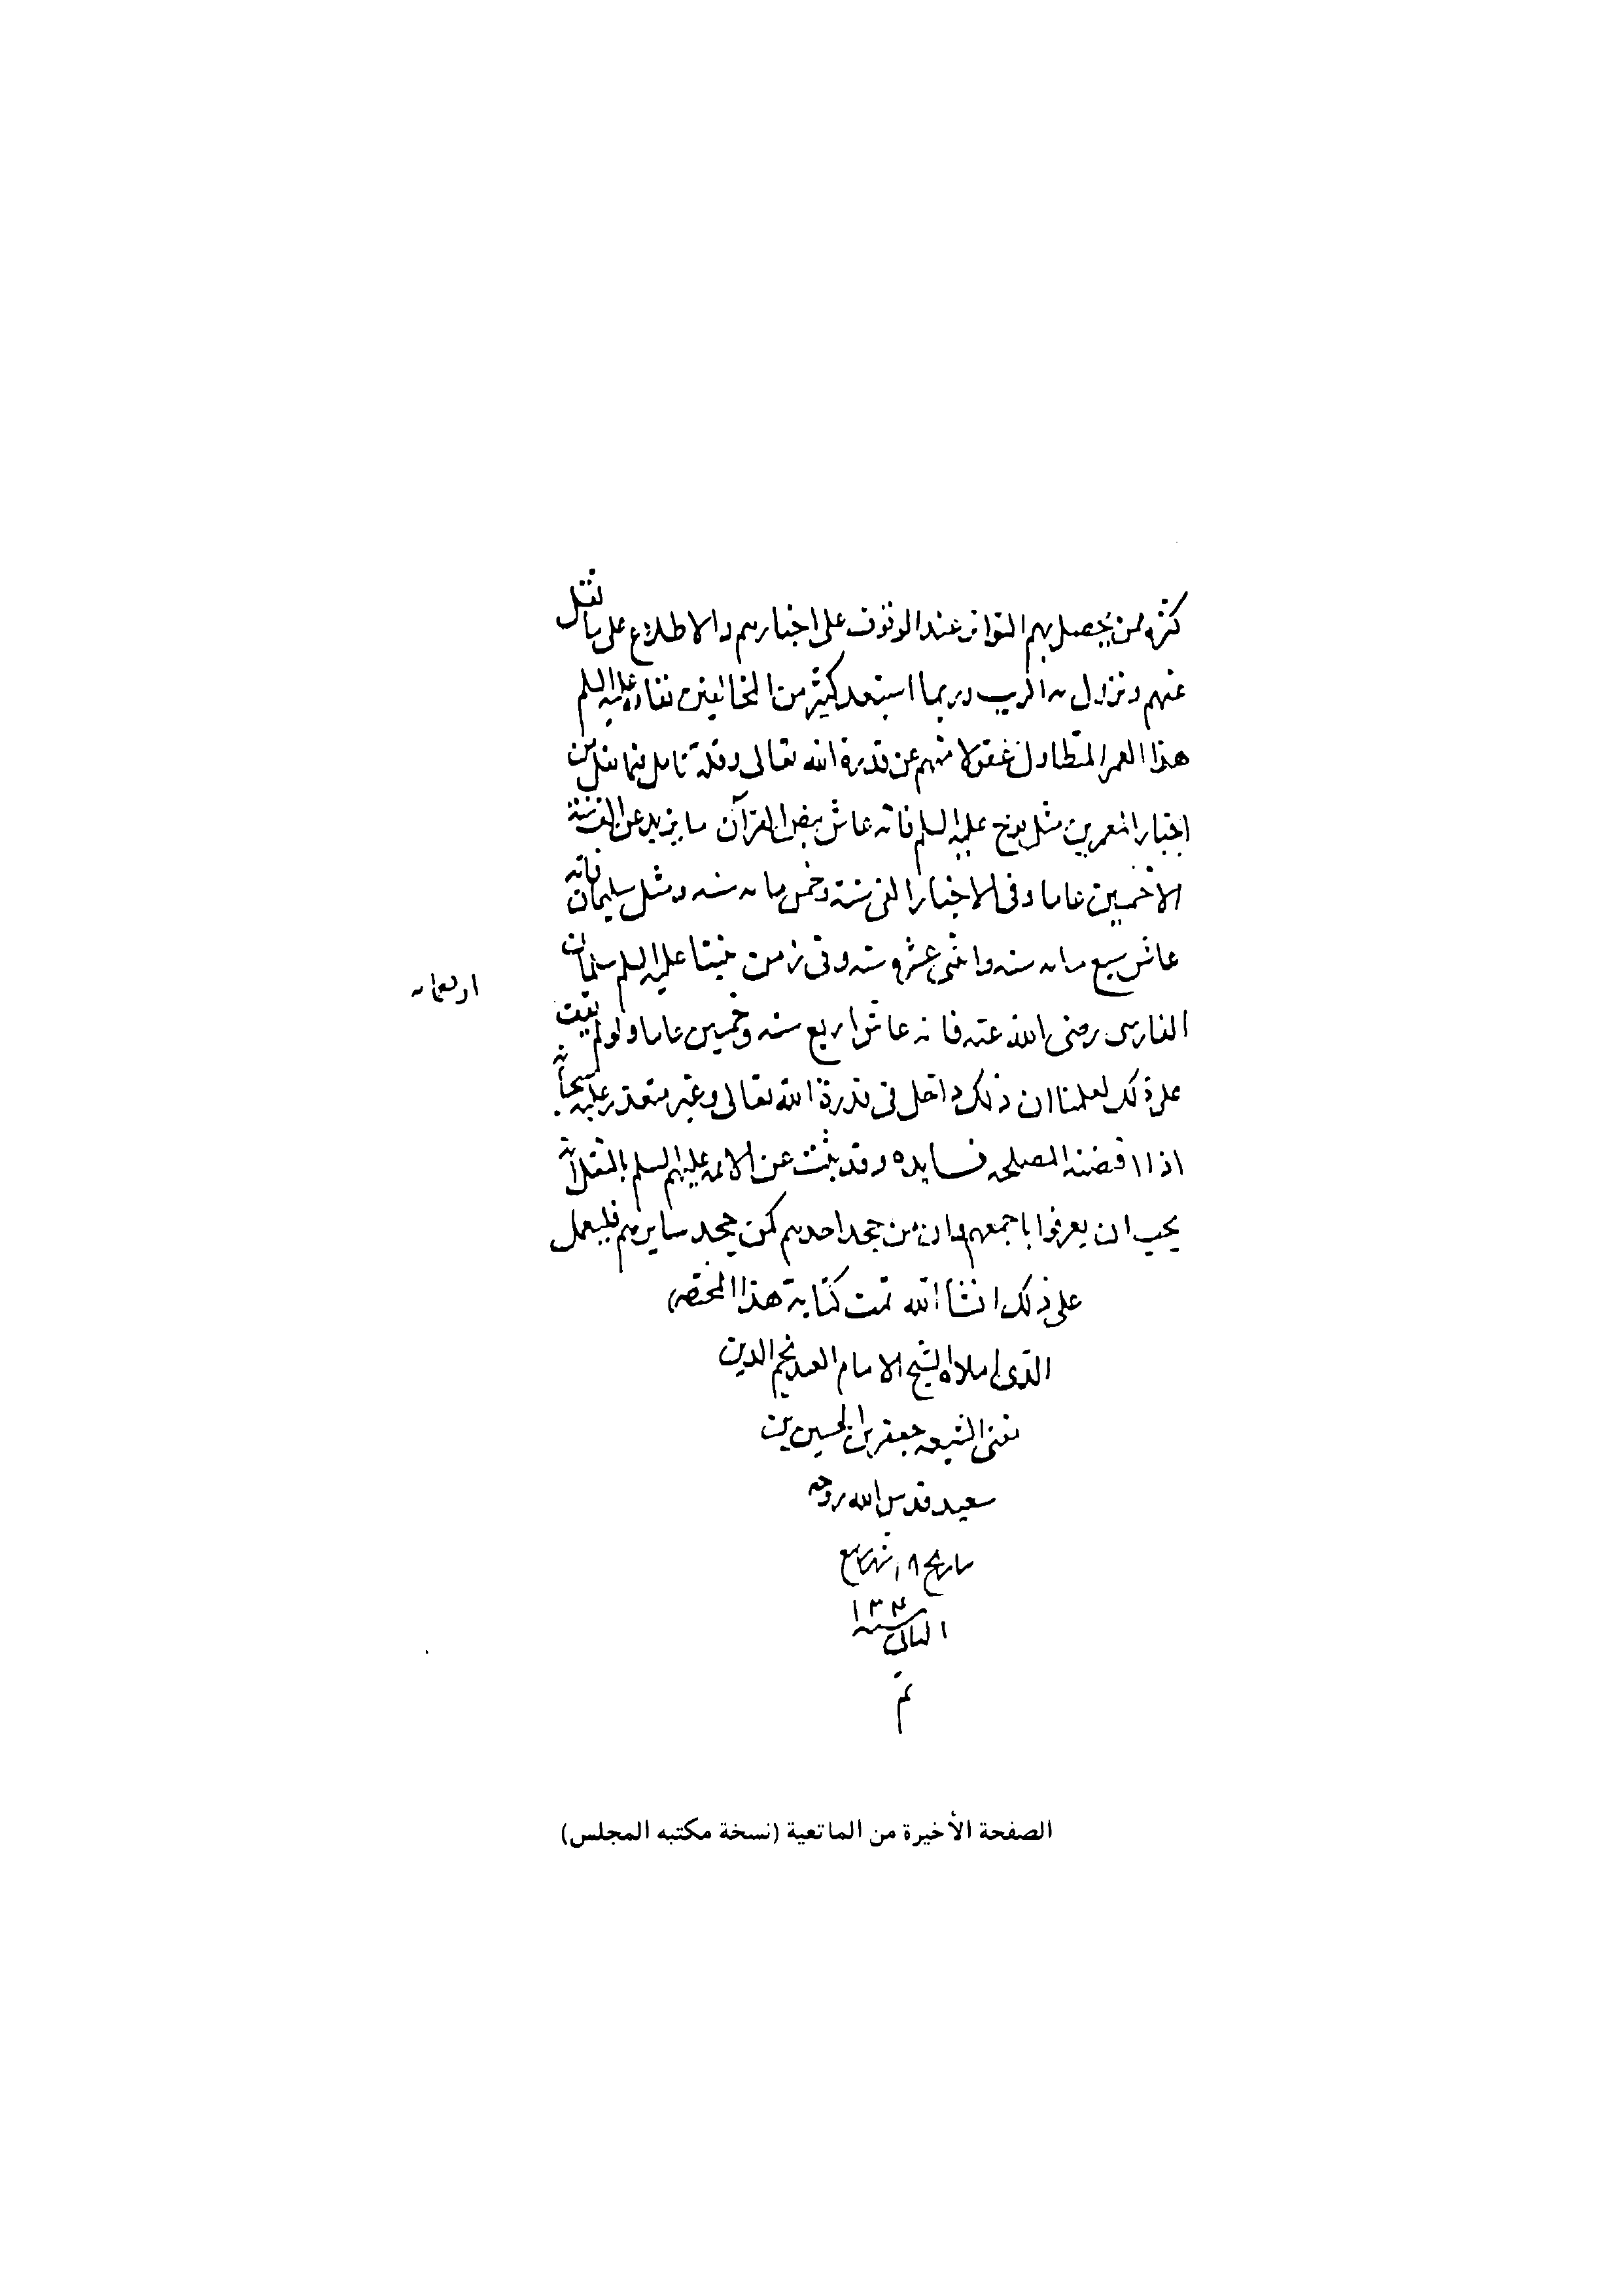 كثرة ممن يحصل بهم التواتر عند الوقوف على اخبارهم والاطلاع على ما نقل
عنهم وتزول به الريب وربما استبعد كثير من المخالفين بقاءه عليه السلم
هذا العمر المتطاول غفولا منهم عن قدرة الله تعالى وقلة تامل فيما نقل من
اخبار المعمرين مثل نوح عليه السلم فانه عاش بنص القرآن ما يزيد عن الف سنة
الا خمسين عاما وفى الاخبار الفى سنة وخمس مايه سنه ومثل سليمان فانه
عاش سبع مايه سنه واثنى عشر سنه وفى زمن نبينا عليه السلم سلمان
اربعمايه
الفارسى رضى الله عنه فانه عاش اربع سنه وخمسين عاما ولو لم بقيت
على ذلك لعلمنا ان ذلك داخل فى قدرة الله تعالى وغير متعذر عليه سبحانه
اذا اقضته المصلحه فسايده وقد ثبت عن الايمه عليهم السلم بالنقل انه
يجب ان يعرفوا باجمعهم وان من جحد احدهم كمن جحد سايرهم فليعمل
على ذلك انشا الله تمت كتابة هذا المختصر
الذى املاه الشيخ الامام العبد نجم الدين
نعنى الشيعه جعفر بن الحسين بن
سعيد قدس الله روحه
تاريخ ١٨ شهر ربيع
الثانى سنه ١٣٣
تم
الصفحة الأخيرة من الماتعية (نسخة مكتبه المجلس)